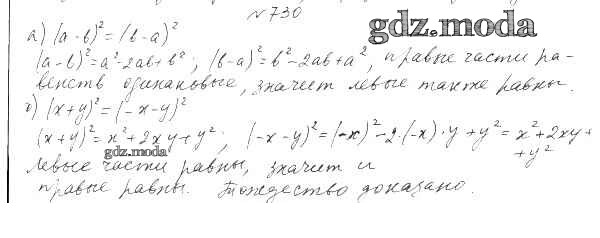 №730
gdz.moda
а) (a-b)² = (b-a)²
(a-b)² = a²-2ab+b²; (b-a)² = b²-2ab+a², правые части ра-
венств одинаковые, значит левые также равны.
б) (x+y)² = (-x-y)²
(x+y)² = x²+2xy+y²; (-x-y)² = (-x)²-2·(-x)·y+y² = x²+2xy+
+y²
gdz.moda
левые части равны, значит и
правые равны. Тождество доказано.